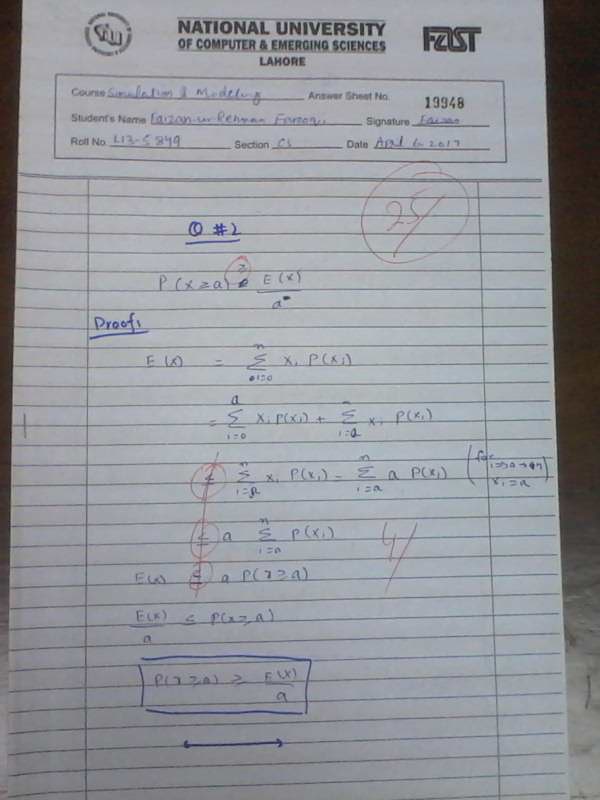 NATIONAL UNIVERSITY
OF COMPUTER & EMERGING SCIENCES
LAHORE
FAST
Course Simulation & Modeling Answer Sheet No. 19948
Student's Name Faizan-ur-Rehman Farooqi Signature Faizan
Roll No. L13-5849 Section CS Date April 6 2017
25/
Q #2
P(x ≥ a) ≥ E(x)/a
Proof:
E(x) = n∑i=0 xi P(xi)
= a∑i=0 xi P(xi) + n∑i=a xi P(xi)
≤ n∑i=a xi P(xi) = n∑i=a a P(xi) (for i=>a→n xi=a)
≤ a n∑i=a P(xi) 4/
E(x) ≤ a P(x ≥ a)
E(x)/a ≤ P(x ≥ a)
P(x ≥ a) ≥ E(x)/a